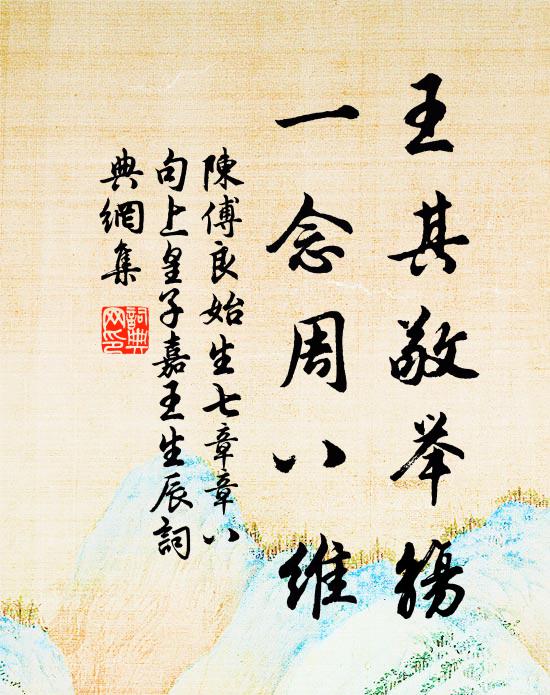 王其敬举觴
一念周八維
陳傅良始生七章章八
句上皇子嘉王生辰詞
典網集
詞典
网印